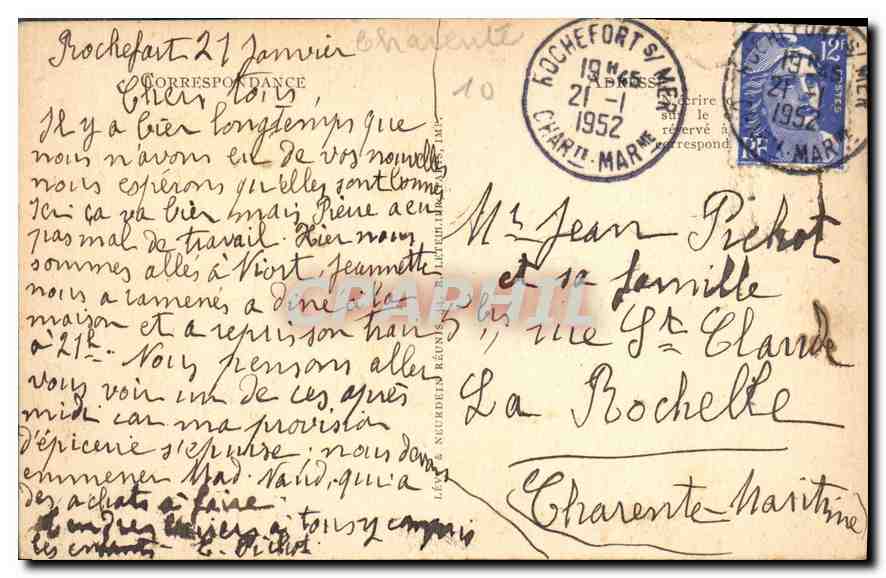 Rochefort 21 Janvier
Charente
CORRESPONDANCE
Chers tous,
Il y a bien longtemps que
nous n'avons eu de vos nouvelles
nous espérons qu'elles sont bonnes
Ici ça va bien mais Pierre a eu
pas mal de travail. Hier nous
sommes allés à Niort, Jeannette
nous a ramenés a diné à la
maison et a repris son train
à 21h. Nous pensons aller
vous voir un de ces après
midi car ma provision
d'épicerie s'epuise, nous devons
emmener Mad. Naud, qui a
des achats à faire.
Tendres baisers à tous y compris
les enfants E. Pichot
10
LÉVY & NEURDEIN RÉUNIS
IMP.
ROCHEFORT S/ MER
19 H 45
21 - 1
1952
CHARTE - MARME
ADRESSE
écrire
sur le
réservé à
correspond
12F
POSTES
RF
ROCHEFORT S/ MER
19 H 45
21 - 1
1952
MARME
Mr Jean Pichot
et sa famille
5 bis rue St. Claude
La Rochelle
Charente-Maritime
CPAPHIL